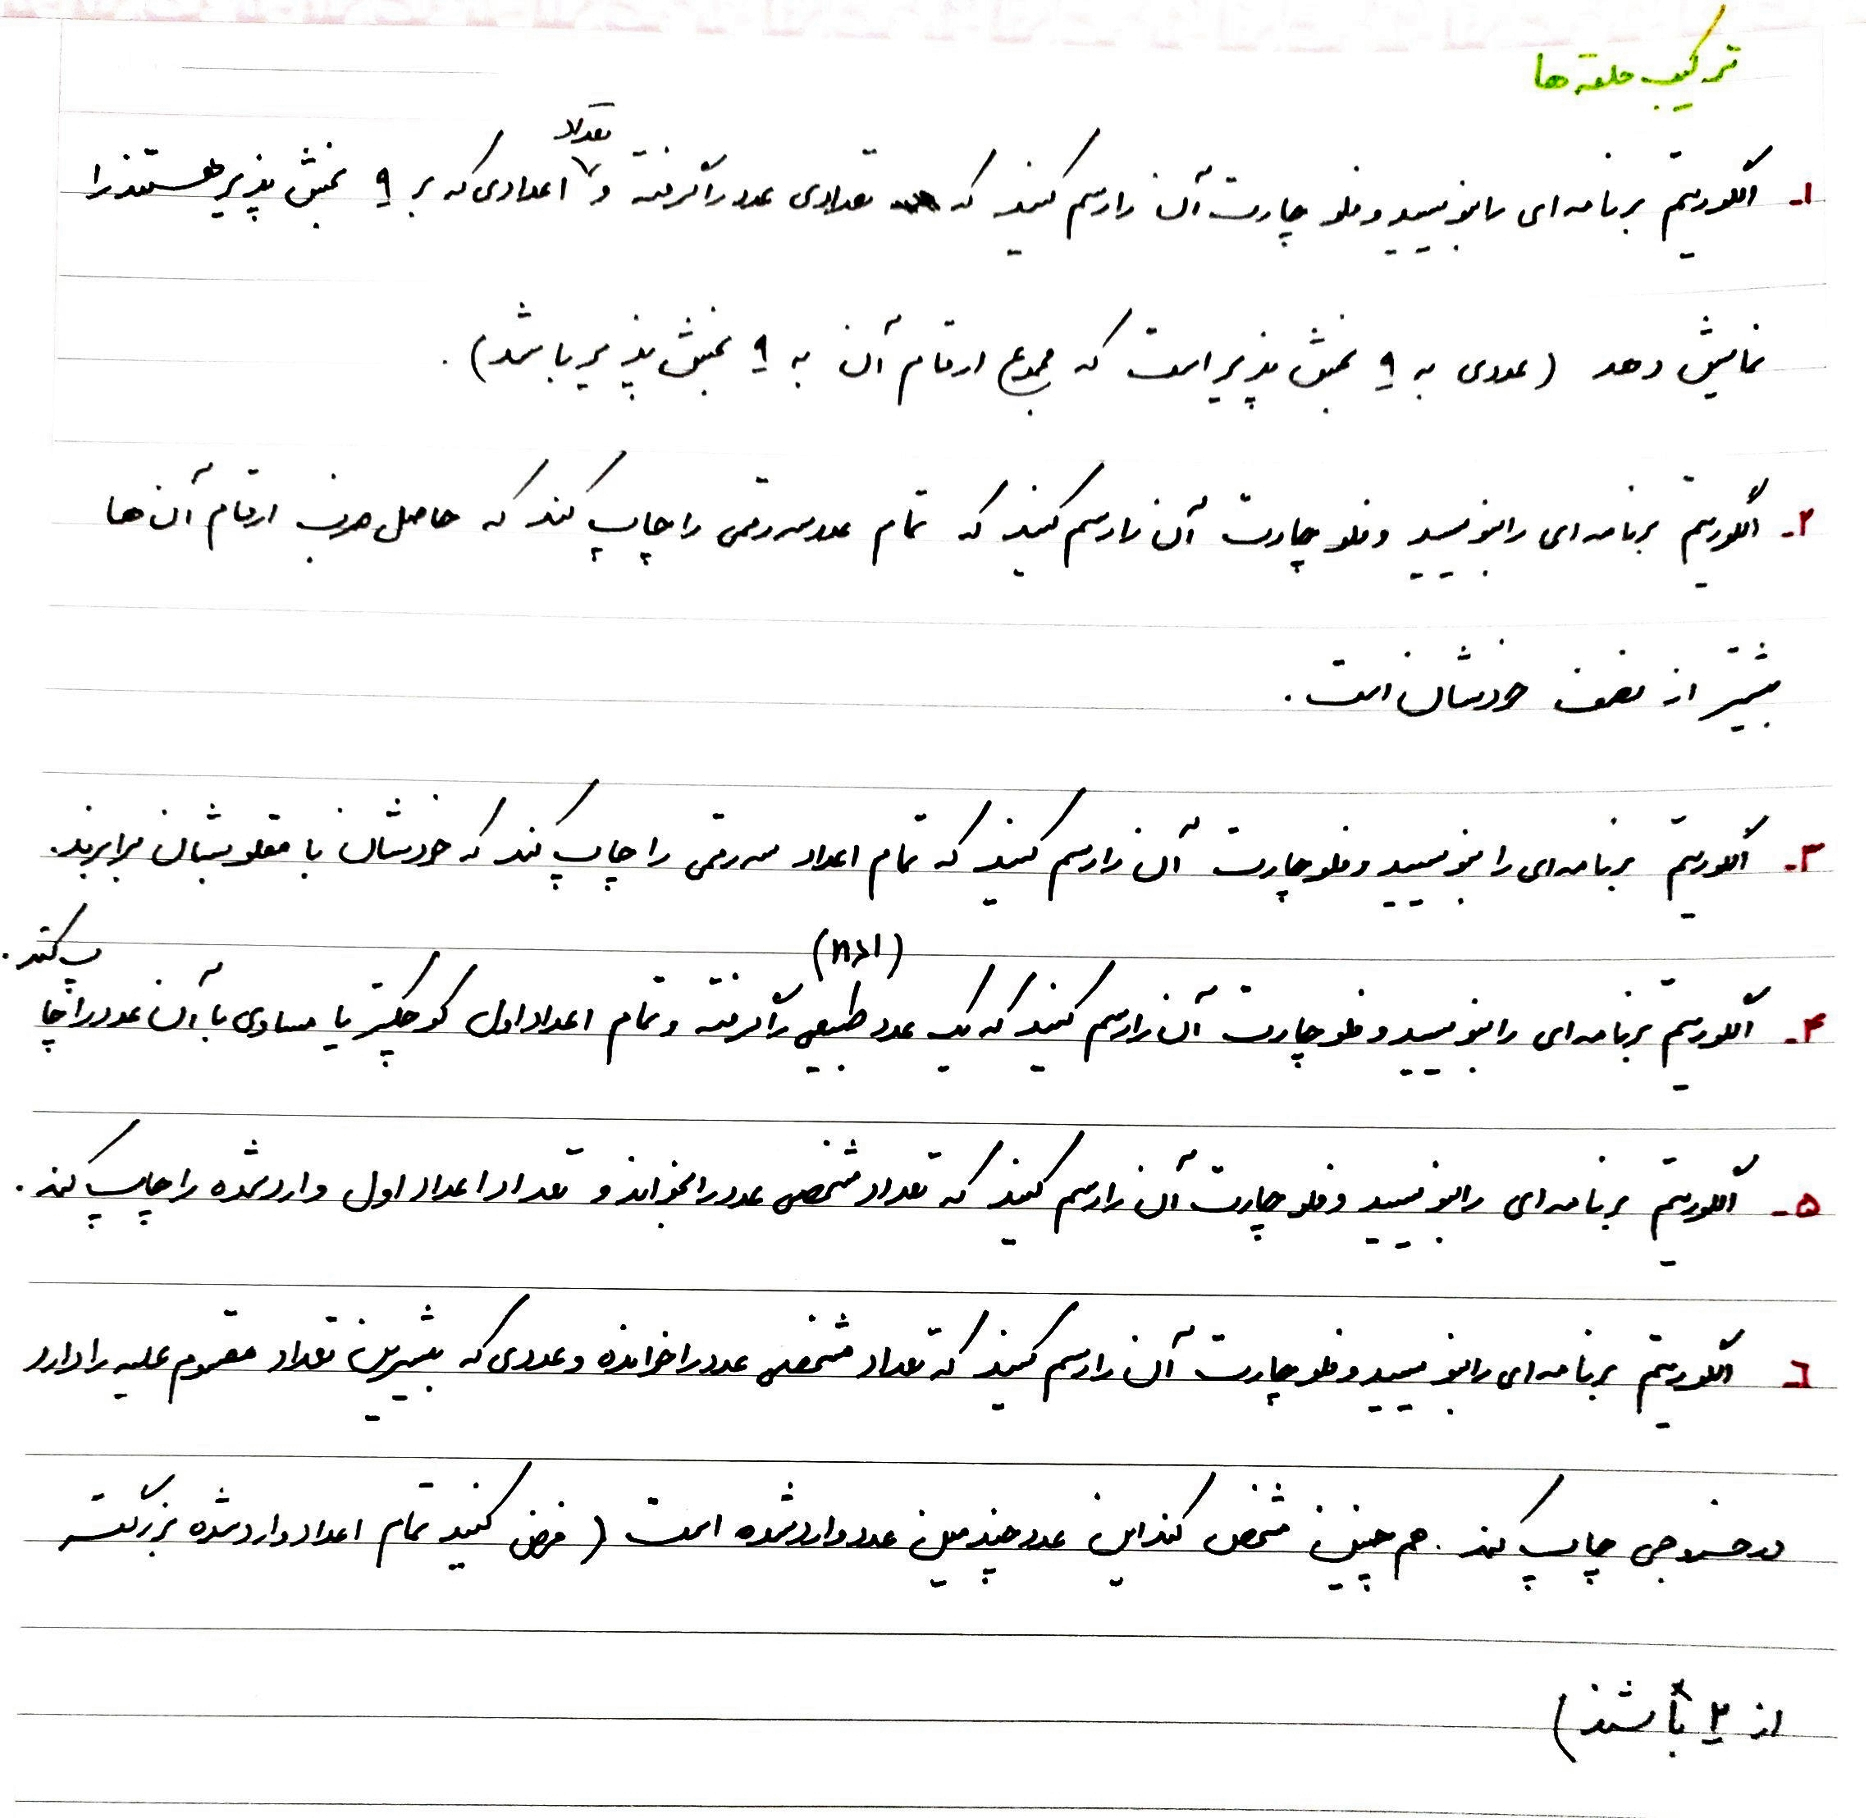 ترکیب حلقه ها
۱- الگوریتم برنامه ای را بنویسید و فلوچارت آن را رسم کنید که تعدادی عدد را گرفته و تعداد اعدادی که بر ۹ بخش پذیر هستند را
نمایش دهد (عددی به ۹ بخش پذیر است که مجموع ارقام آن به ۹ بخش پذیر باشد).
۲- الگوریتم برنامه ای را بنویسید و فلوچارت آن را رسم کنید که تمام عدد سه رقمی را چاپ کند که حاصل ضرب ارقام آن ها
بیشتر از نصف خودشان است.
۳- الگوریتم برنامه ای را بنویسید و فلوچارت آن را رسم کنید که تمام اعداد سه رقمی را چاپ کند که خودشان با مقلوبشان برابرند.
۴- الگوریتم برنامه ای را بنویسید و فلوچارت آن را رسم کنید که یک عدد طبیعی (n>1) را گرفته و تمام اعداد اول کوچکتر یا مساوی با آن عدد را چاپ کند.
۵- الگوریتم برنامه ای را بنویسید و فلوچارت آن را رسم کنید که تعداد مشخصی عدد را بخواند و تعداد اعداد اول وارد شده را چاپ کند.
۶- الگوریتم برنامه ای را بنویسید و فلوچارت آن را رسم کنید که تعداد مشخصی عدد را خوانده و عددی که بیشترین تعداد مقسوم علیه را دارد
در خروجی چاپ کند. هم چنین مشخص کند این عدد چندمین عدد وارد شده است (فرض کنید تمام اعداد وارد شده بزرگتر
از ۲ باشند)